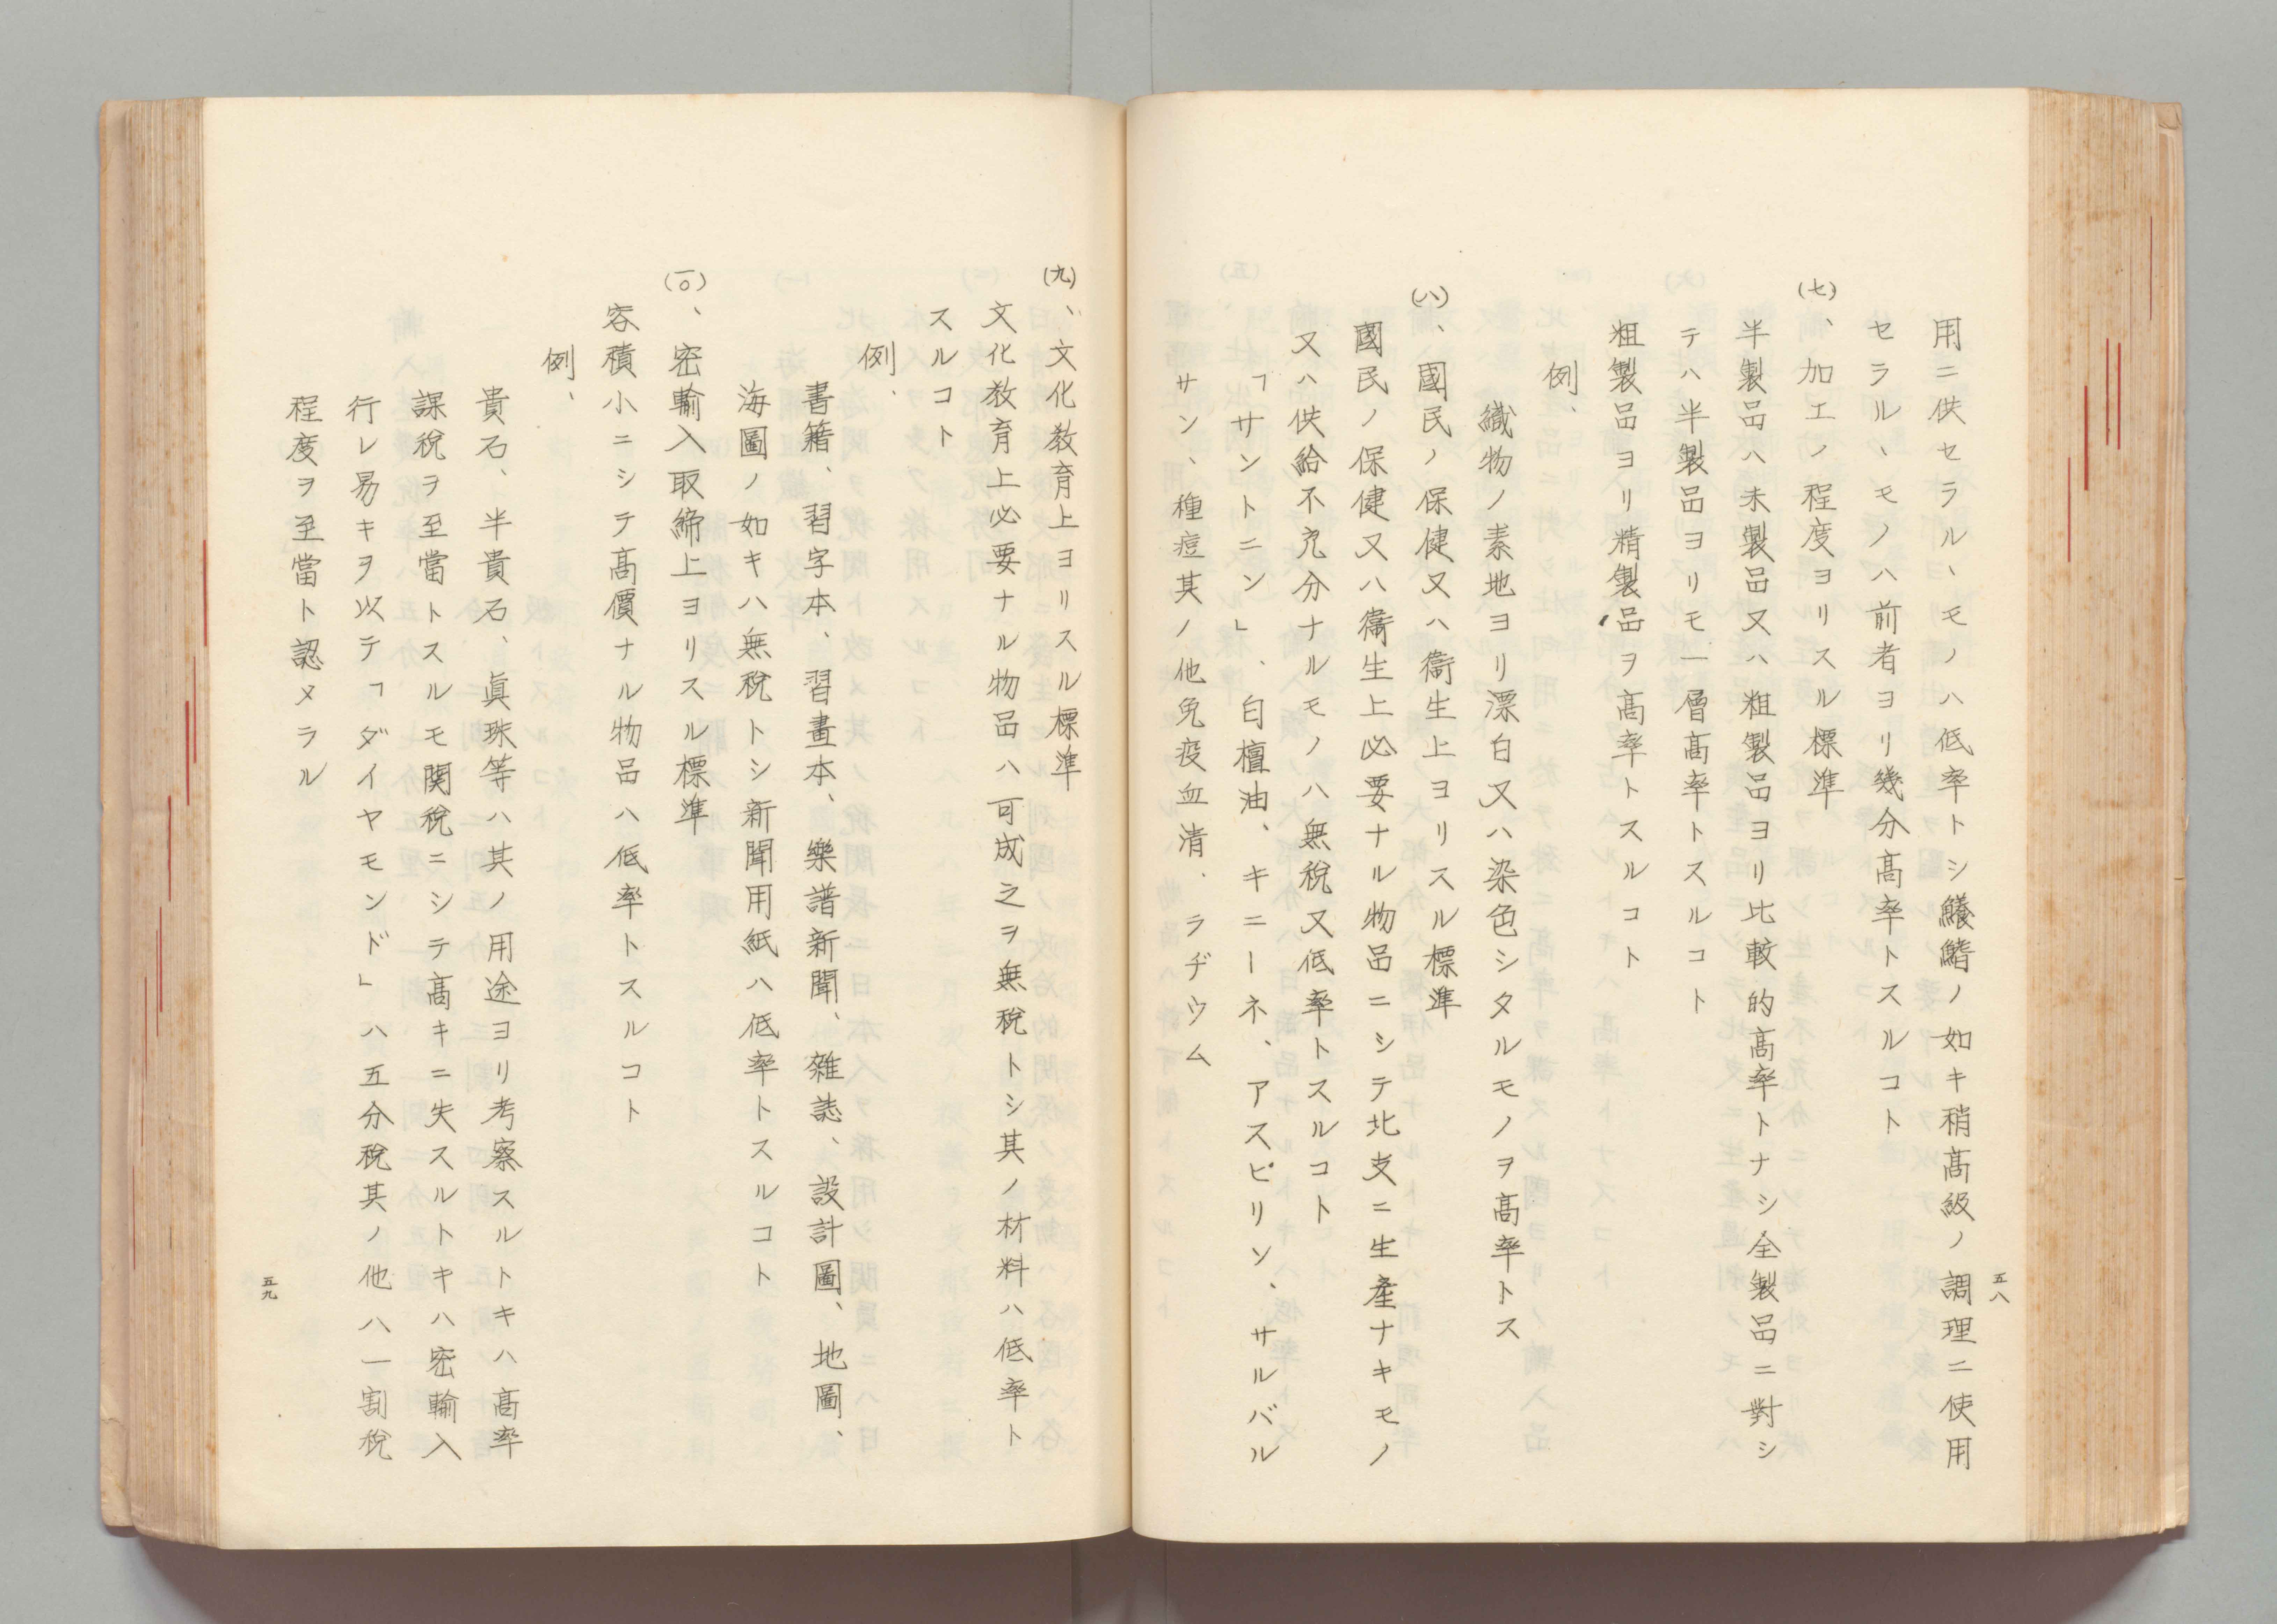 五八
用ニ供セラルヽモノハ低率トシ鱶鰭ノ如キ稍高級ノ調理ニ使用
セラルヽモノハ前者ヨリ幾分高率トスルコト
(七)、加工ノ程度ヨリスル標準
半製品ハ未製品又ハ粗製品ヨリ比較的高率トナシ全製品ニ對シ
テハ半製品ヨリモ一層高率トスルコト
粗製品ヨリ精製品ヲ高率トスルコト
例、
織物ノ素地ヨリ漂白又ハ染色シタルモノヲ高率トス
(八)、國民ノ保健又ハ衞生上ヨリスル標準
國民ノ保健又ハ衞生上必要ナル物品ニシテ北支ニ生產ナキモノ
又ハ供給不充分ナルモノハ無稅又低率トスルコト
「サントニン」、白檀油、キニーネ、アスピリン、サルバル
サン、種痘其ノ他免疫血清、ラヂウム
(九)、文化敎育上ヨリスル標準
文化敎育上必要ナル物品ハ可成之ヲ無稅トシ其ノ材料ハ低率ト
スルコト
例、
書籍、習字本、習畫本、樂譜新聞、雜誌、設計圖、地圖、
海圖ノ如キハ無稅トシ新聞用紙ハ低率トスルコト
(一〇)、密輸入取締上ヨリスル標準
容積小ニシテ高價ナル物品ハ低率トスルコト
例、
貴石、半貴石、眞珠等ハ其ノ用途ヨリ考察スルトキハ高率
課稅ヲ至當トスルモ関稅ニシテ高キニ失スルトキハ密輸入
行レ易キヲ以テ「ダイヤモンド」ハ五分稅其ノ他ハ一割稅
程度ヲ至當ト認メラル
五九